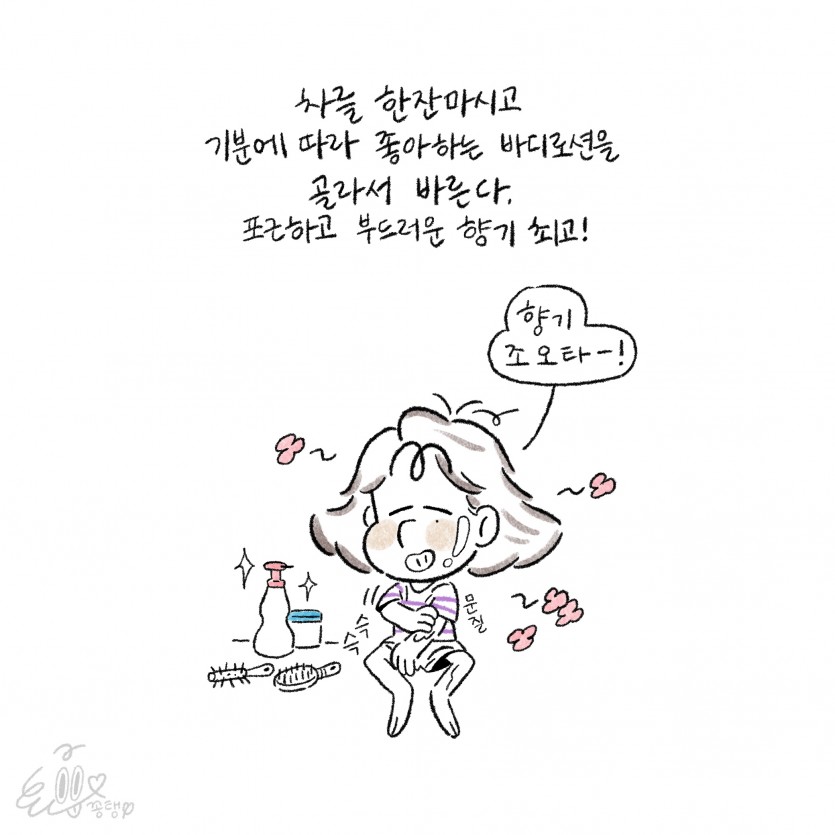 차를 한잔마시고
기분에 따라 좋아하는 바디로션을
골라서 바른다.
포근하고 부드러운 향기 최고!
향기
조오타-!
문질
슥슥